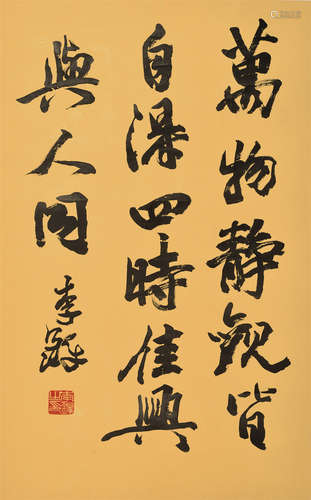 萬物静觀皆
自得四時佳興
與人同
李鐸